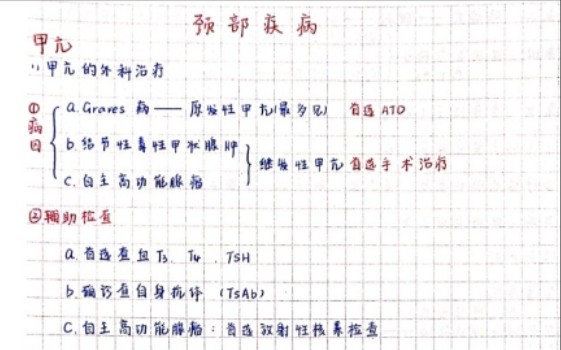 颈部疾病
甲亢
1) 甲亢的外科治疗
①病因
a. Graves 病 —— 原发性甲亢(最多见) 首选 ATD
b. 结节性毒性甲状腺肿
c. 自主高功能腺瘤
继发性甲亢 首选手术治疗
②辅助检查
a. 首选查血 T3、T4、TSH
b. 确诊查自身抗体 (TsAb)
C. 自主高功能腺瘤：首选放射性核素检查